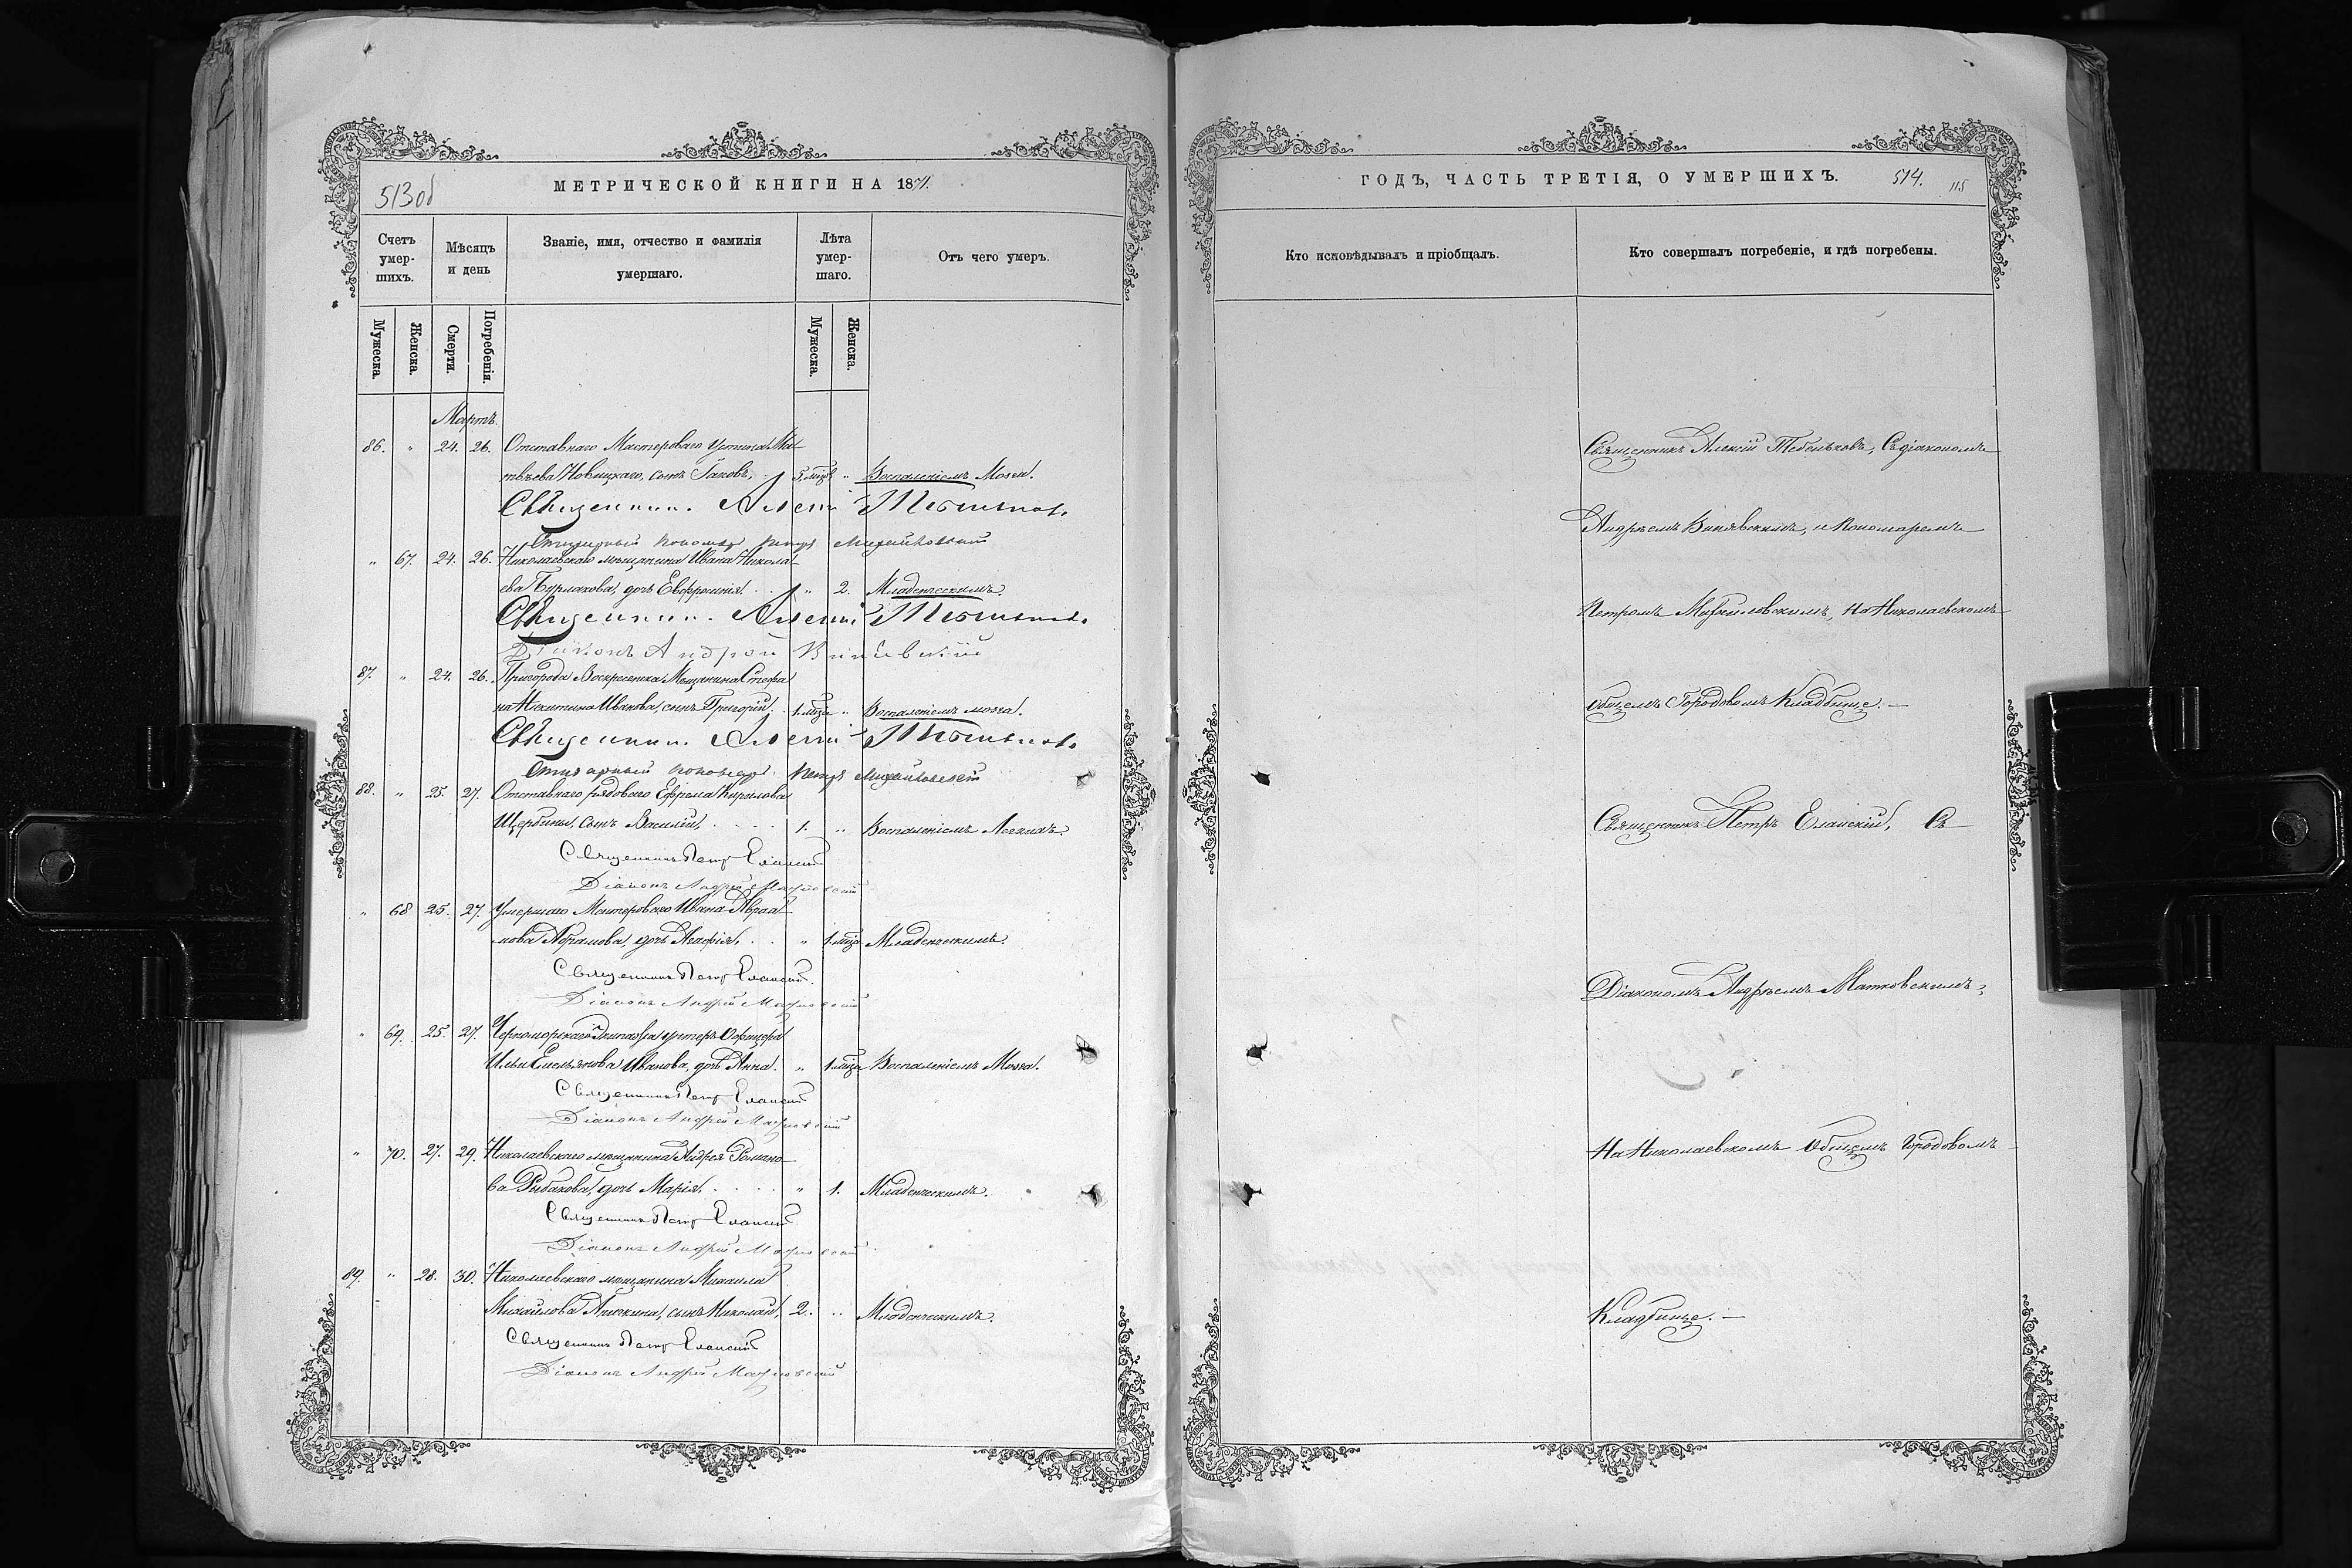 513 об
МЕТРИЧЕСКОЙ КНИГИ НА 1871.
Счетъ умер-шихъ.
Мѣсяцъ и день
Званіе, имя, отчество и фамилія умершаго.
Лѣта умер-шаго.
Отъ чего умеръ.
Мужеска.
Женска.
Смерти.
Погребенія.
Мужеска.
Женска.
Мартъ.
86. " 24. 26. Отставнаго Мастероваго Устина Ма-
твѣева Новицкаго, сынъ Іаковъ. 5 мцъ " Воспаленіемъ Мозга.
Священникъ Алексій
Пономарь Петръ Михайловскій
" 67. 24. 26. Николаевскаго мѣщанина Ивана Никола-
ева Бурлакова, дочь Евфросинія. " 2. Младенческимъ.
Священникъ Алексій
Діаконъ Андрей
87. " 24. 26. Пригорода Воскресенска Мѣщанина Стефа-
на Никитина Иванова, сынъ Григорій. 1 мца " Воспаленіемъ мозга.
Священникъ Алексій
Пономарь Петръ Михайловскій
88. " 25. 27. Отставнаго рядоваго Ефрема Кирилова
Щербины, сынъ Василій. 1. " Воспаленіемъ Легкихъ.
Священникъ Петръ Еланскій
Діаконъ Андрей Матковскій
" 68 25. 27. Умершаго Мастероваго Ивана Авраа-
мова Абрамова, дочь Агафія. " 1 мца Младенческимъ.
Священникъ Петръ Еланскій.
Діаконъ Андрей Матковскій
" 69. 25. 27. Черноморскаго Экипажа унтеръ Офицера
Ильи Емельянова Иванова, дочь Анна. " 1 мца Воспаленіемъ Мозга.
Священникъ Петръ Еланскій
Діаконъ Андрей Матковскій
" 70. 27. 29. Николаевскаго мѣщанина Андрея Романо-
ва Рыбакова, дочь Марія. " 1. Младенческимъ.
Священникъ Петръ Еланскій
Діаконъ Андрей Матковскій
89. " 28. 30. Николаевскаго мѣщанина Михаила
Михайлова сынъ Николай. 2. " Младенческимъ.
Священникъ Петръ Еланскій
Діаконъ Андрей Матковскій
ГОДЪ, ЧАСТЬ ТРЕТІЯ, О УМЕРШИХЪ. 514. 115
Кто исповѣдывалъ и пріобщалъ.
Кто совершалъ погребеніе, и гдѣ погребены.
Священникъ Алексій Съ діакономъ
Андреемъ и Пономаремъ
Петромъ Михайловскимъ, на Николаевскомъ
общемъ Городовомъ Кладбище. —
Священникъ Петръ Еланскій, Съ
Діакономъ Андреемъ Матковскимъ,
На Николаевскомъ Общемъ Городовомъ
Кладбище. —